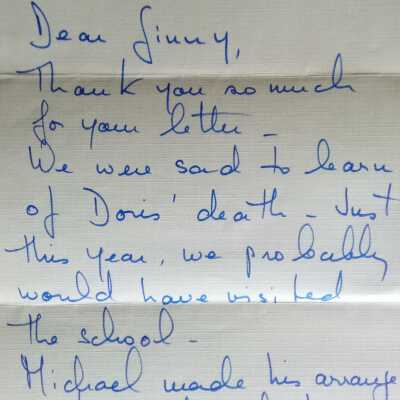 Dear Ginny,
Thank you so much
for your letter –
We were sad to learn
of Doris' death – Just
this year, we probably
would have visited
the school –
Michael made his arrange